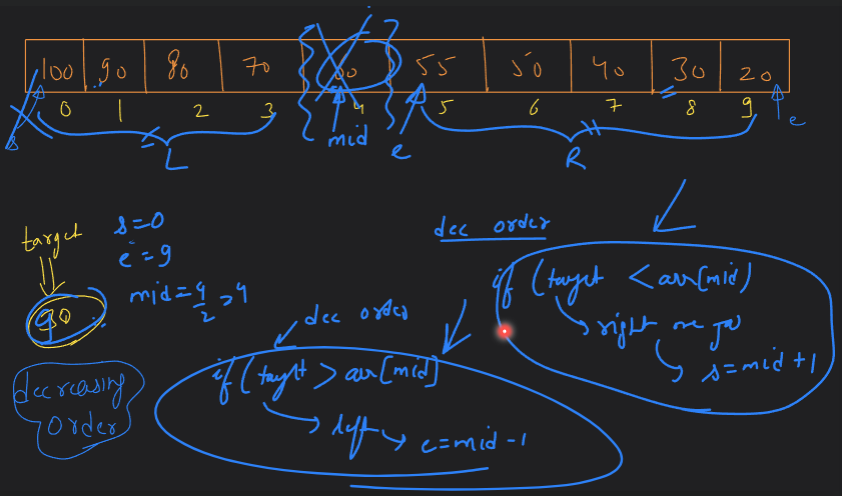 100 90 80 70 60 55 50 40 30 20
0 1 2 3 4 5 6 7 8 9
s mid e e
L R
target
s=0
e=9
mid=9/2=>4
90
decreasing
order
dec order
if (target < arr[mid)
right me jao
s=mid+1
dec order
if (target > arr[mid]
left
e=mid-1